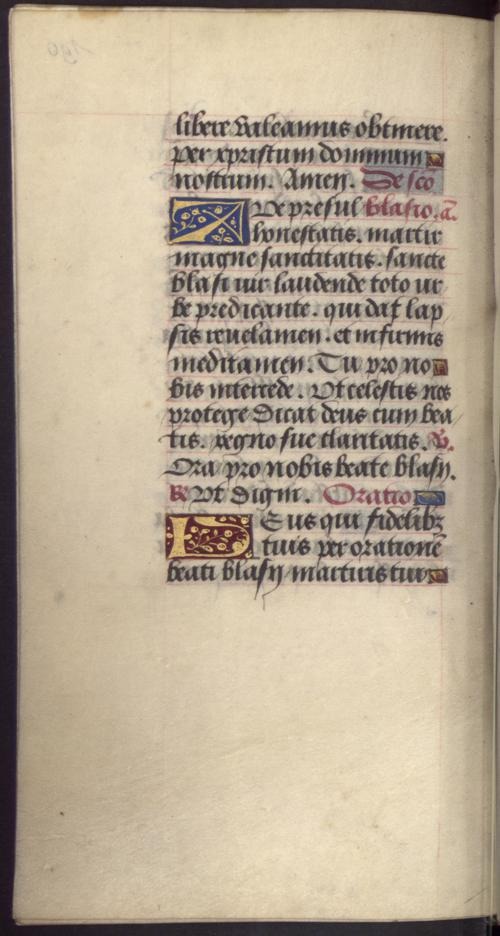 libere valeamus obtinere.
per xpristum dominum
nostrum. Amen. De sco
Ave presul blasio. a.
honestatis. martir
magne sanctitatis. sancte
blasi vir laudende toto ur
be predicante. qui dat lap
sis revelamen. et infirmis
meditamen. Tu pro no
bis intercede. Ut celestis nos
protege dicat deus cum bea
tis. regno sue claritatis. V.
Ora pro nobis beate blasij.
R Ut digni. Oratio
Deus qui fidelibz
tuis per orationē
beati blasij martiris tui